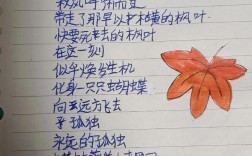 秋风呼啸而過
带走了那早以枯黄的枫叶
快要死去的枫叶
在这一刻
似乎焕发生机
化身一只只蝴蝶
向远方飞去
孤独
永远的孤独